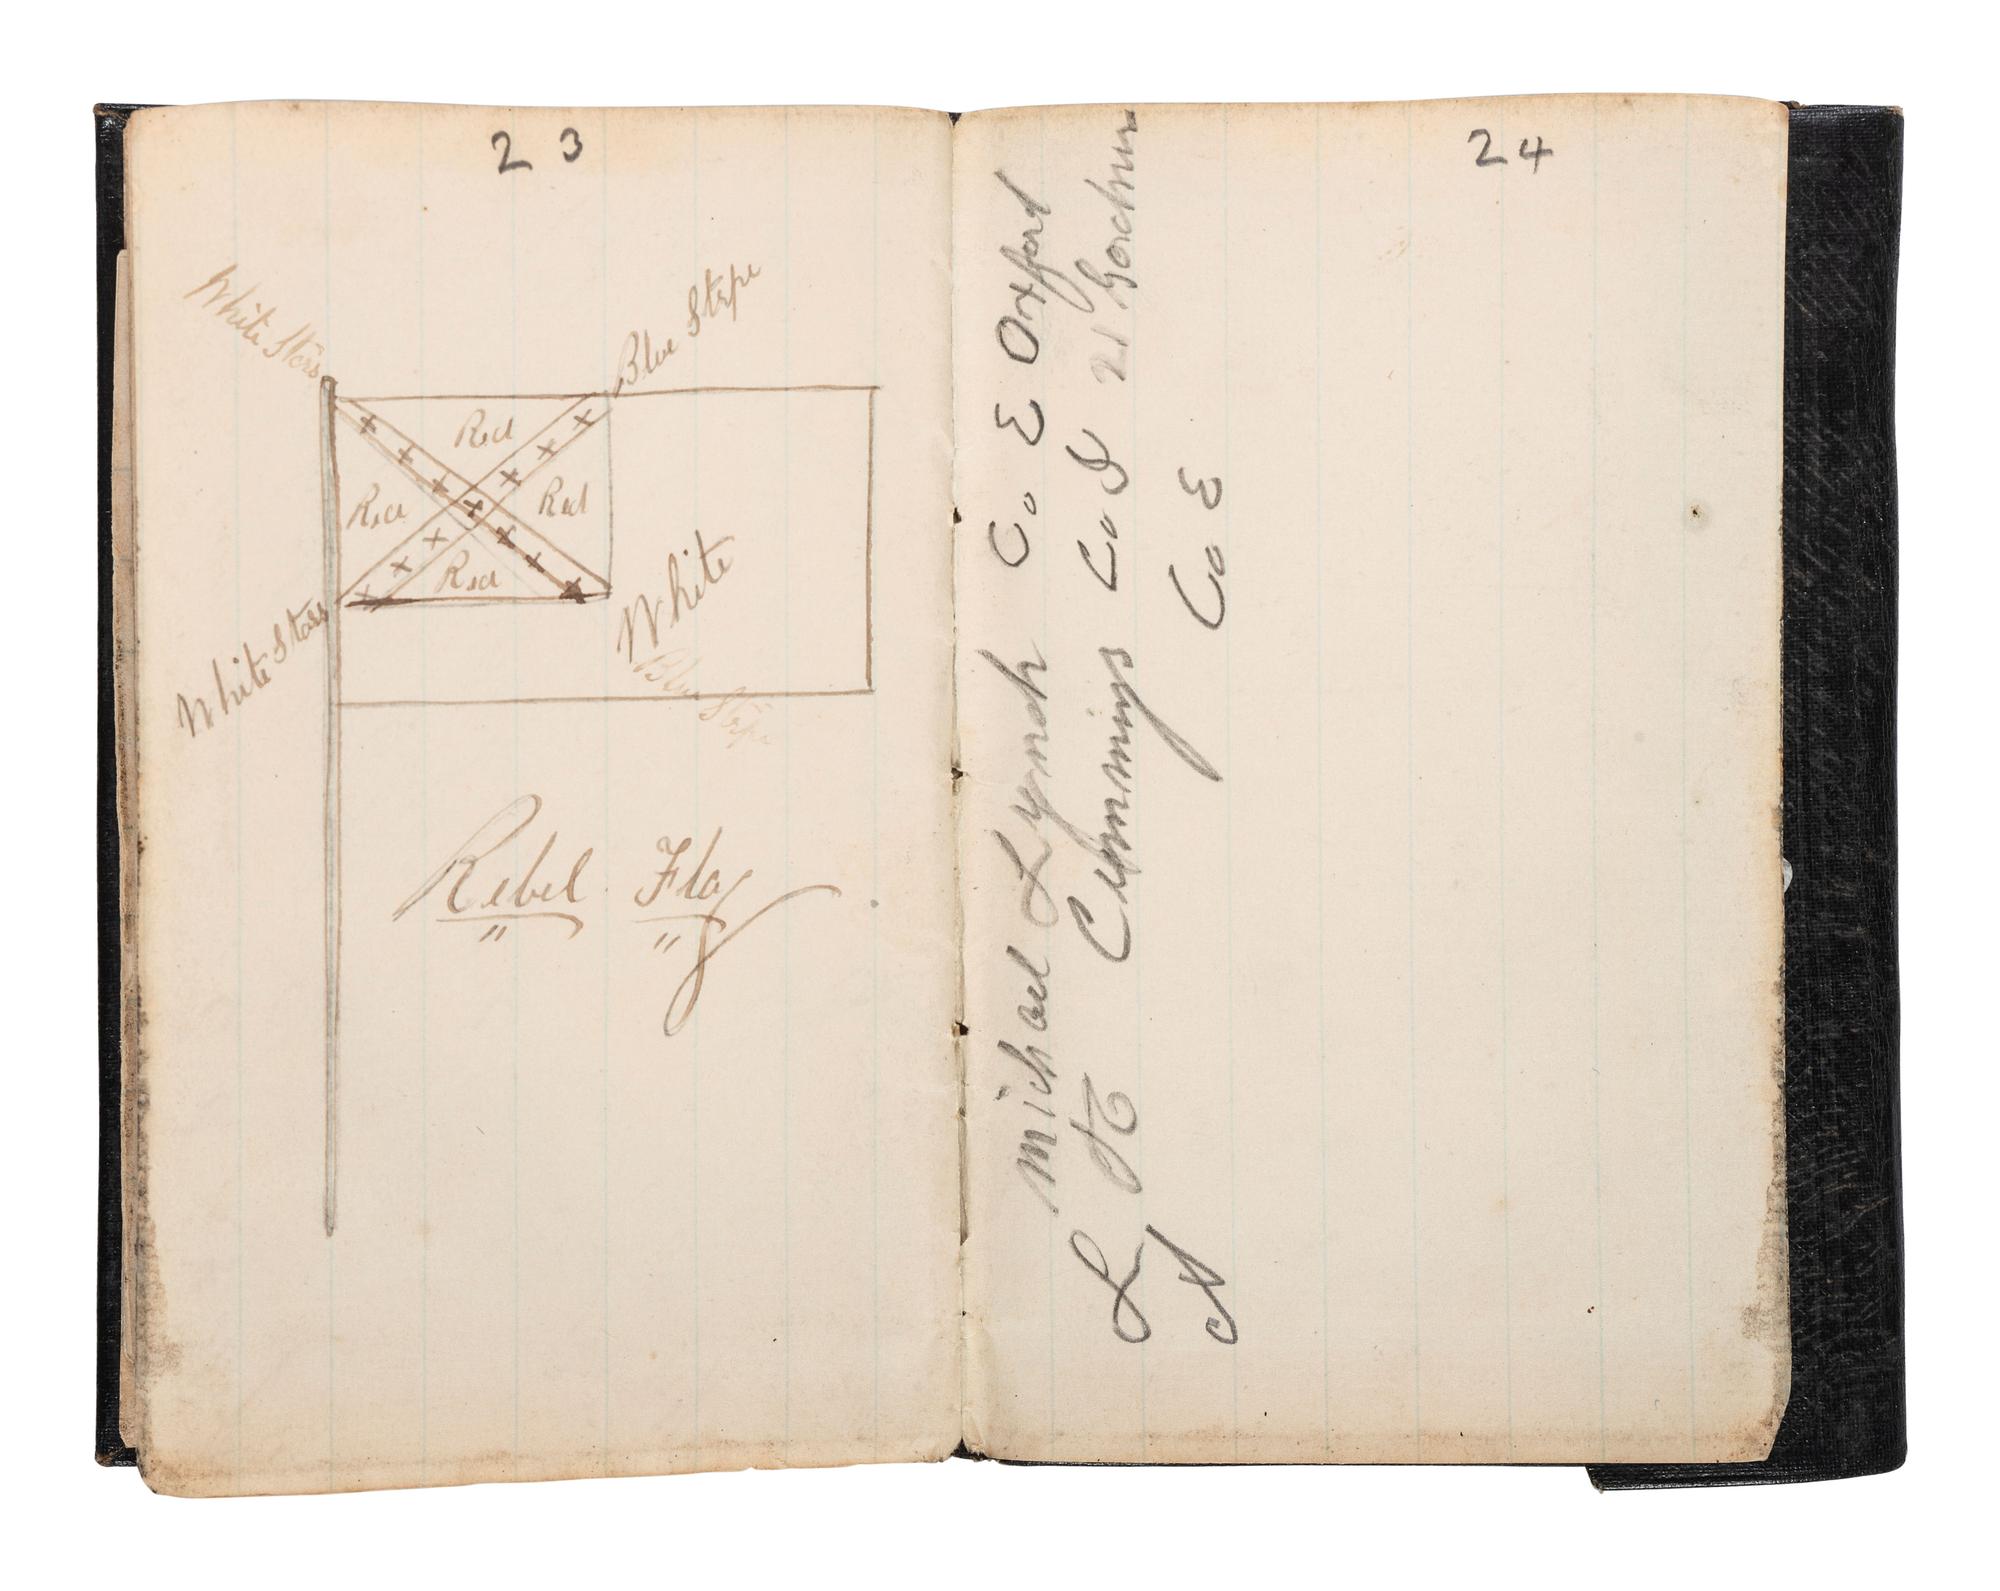 23
White Stars
Blue Stripe
Red
Red
Red
Red
White
White Stars
Blue Stripe
Rebel Flag
24
Michael Lynch Co E Oxford
L H Cummings Co I 21
A Co E